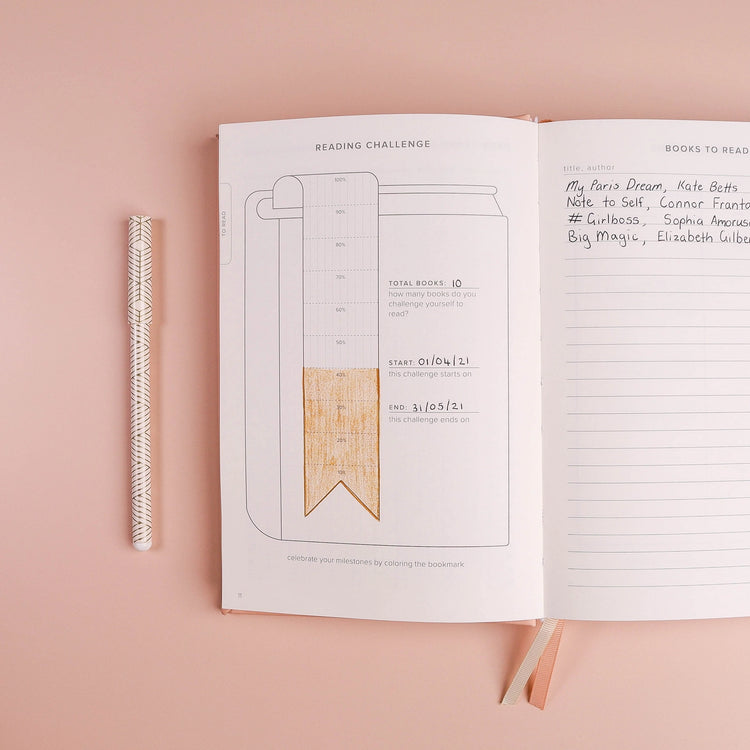 READING CHALLENGE
TO READ
100%
90%
80%
70%
60%
50%
40%
30%
20%
10%
TOTAL BOOKS: 10
how many books do you
challenge yourself to
read?
START: 01/04/21
this challenge starts on
END: 31/05/21
this challenge ends on
celebrate your milestones by coloring the bookmark
11
BOOKS TO READ
title, author
My Paris Dream, Kate Betts
Note to Self, Connor Franta
# Girlboss, Sophia Amorus
Big Magic, Elizabeth Gilbe